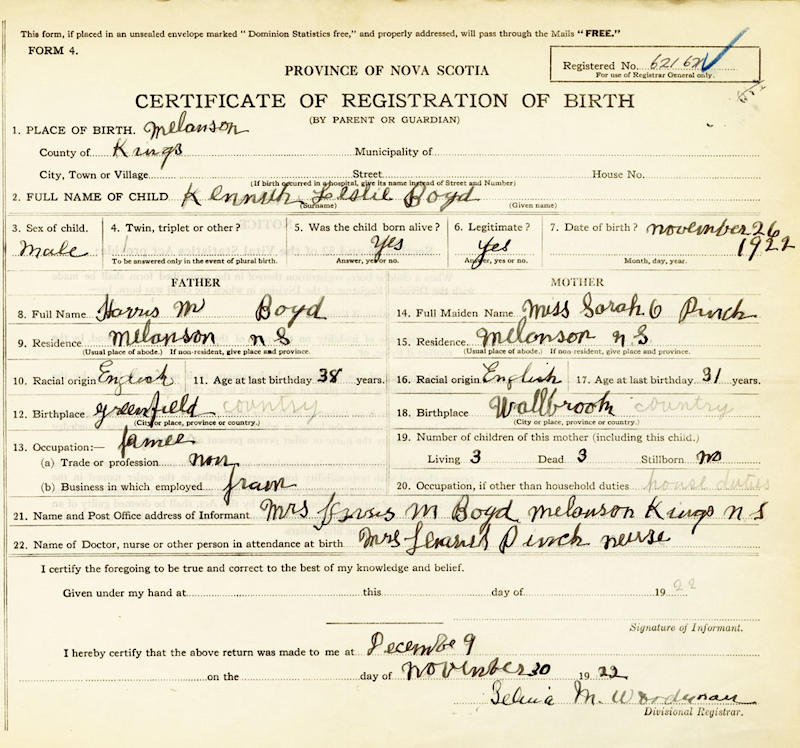 This form, if placed in an unsealed envelope marked "Dominion Statistics free," and properly addressed, will pass through the Mails "FREE."
FORM 4.
Registered No. 62162
For use of Registrar General only.
PROVINCE OF NOVA SCOTIA
CERTIFICATE OF REGISTRATION OF BIRTH
(BY PARENT OR GUARDIAN)
1. PLACE OF BIRTH. Melanson
County of Kings Municipality of
City, Town or Village Street House No.
(If birth occurred in a hospital, give its name instead of Street and Number)
2. FULL NAME OF CHILD Kennith Leslie Boyd
(Surname) (Given name)
3. Sex of child. 4. Twin, triplet or other? 5. Was the child born alive? 6. Legitimate? 7. Date of birth? november 26
Male Yes Yes 1922
To be answered only in the event of plural birth. Answer, yes or no. Answer, yes or no. Month, day, year.
FATHER MOTHER
8. Full Name Harris M Boyd 14. Full Maiden Name Miss Sarah O Pinch
9. Residence Melanson n S 15. Residence Melanson n S
(Usual place of abode.) If non-resident, give place and province. (Usual place of abode.) If non-resident, give place and province.
10. Racial origin English 11. Age at last birthday 38 years. 16. Racial origin English 17. Age at last birthday 31 years.
12. Birthplace Greenfield country 18. Birthplace Wallbrook country
(City or place, province or country.) (City or place, province or country.)
13. Occupation:— 19. Number of children of this mother (including this child.)
(a) Trade or profession non Living 3 Dead 3 Stillborn no
(b) Business in which employed 20. Occupation, if other than household duties house duties
21. Name and Post Office address of Informant Mrs M Boyd Melanson Kings n S
22. Name of Doctor, nurse or other person in attendance at birth Mrs Pinch nurse
I certify the foregoing to be true and correct to the best of my knowledge and belief.
Given under my hand at this day of 1922
Signature of Informant.
I hereby certify that the above return was made to me at December 9
on the day of November 30 1922
M. Woodman
Divisional Registrar.